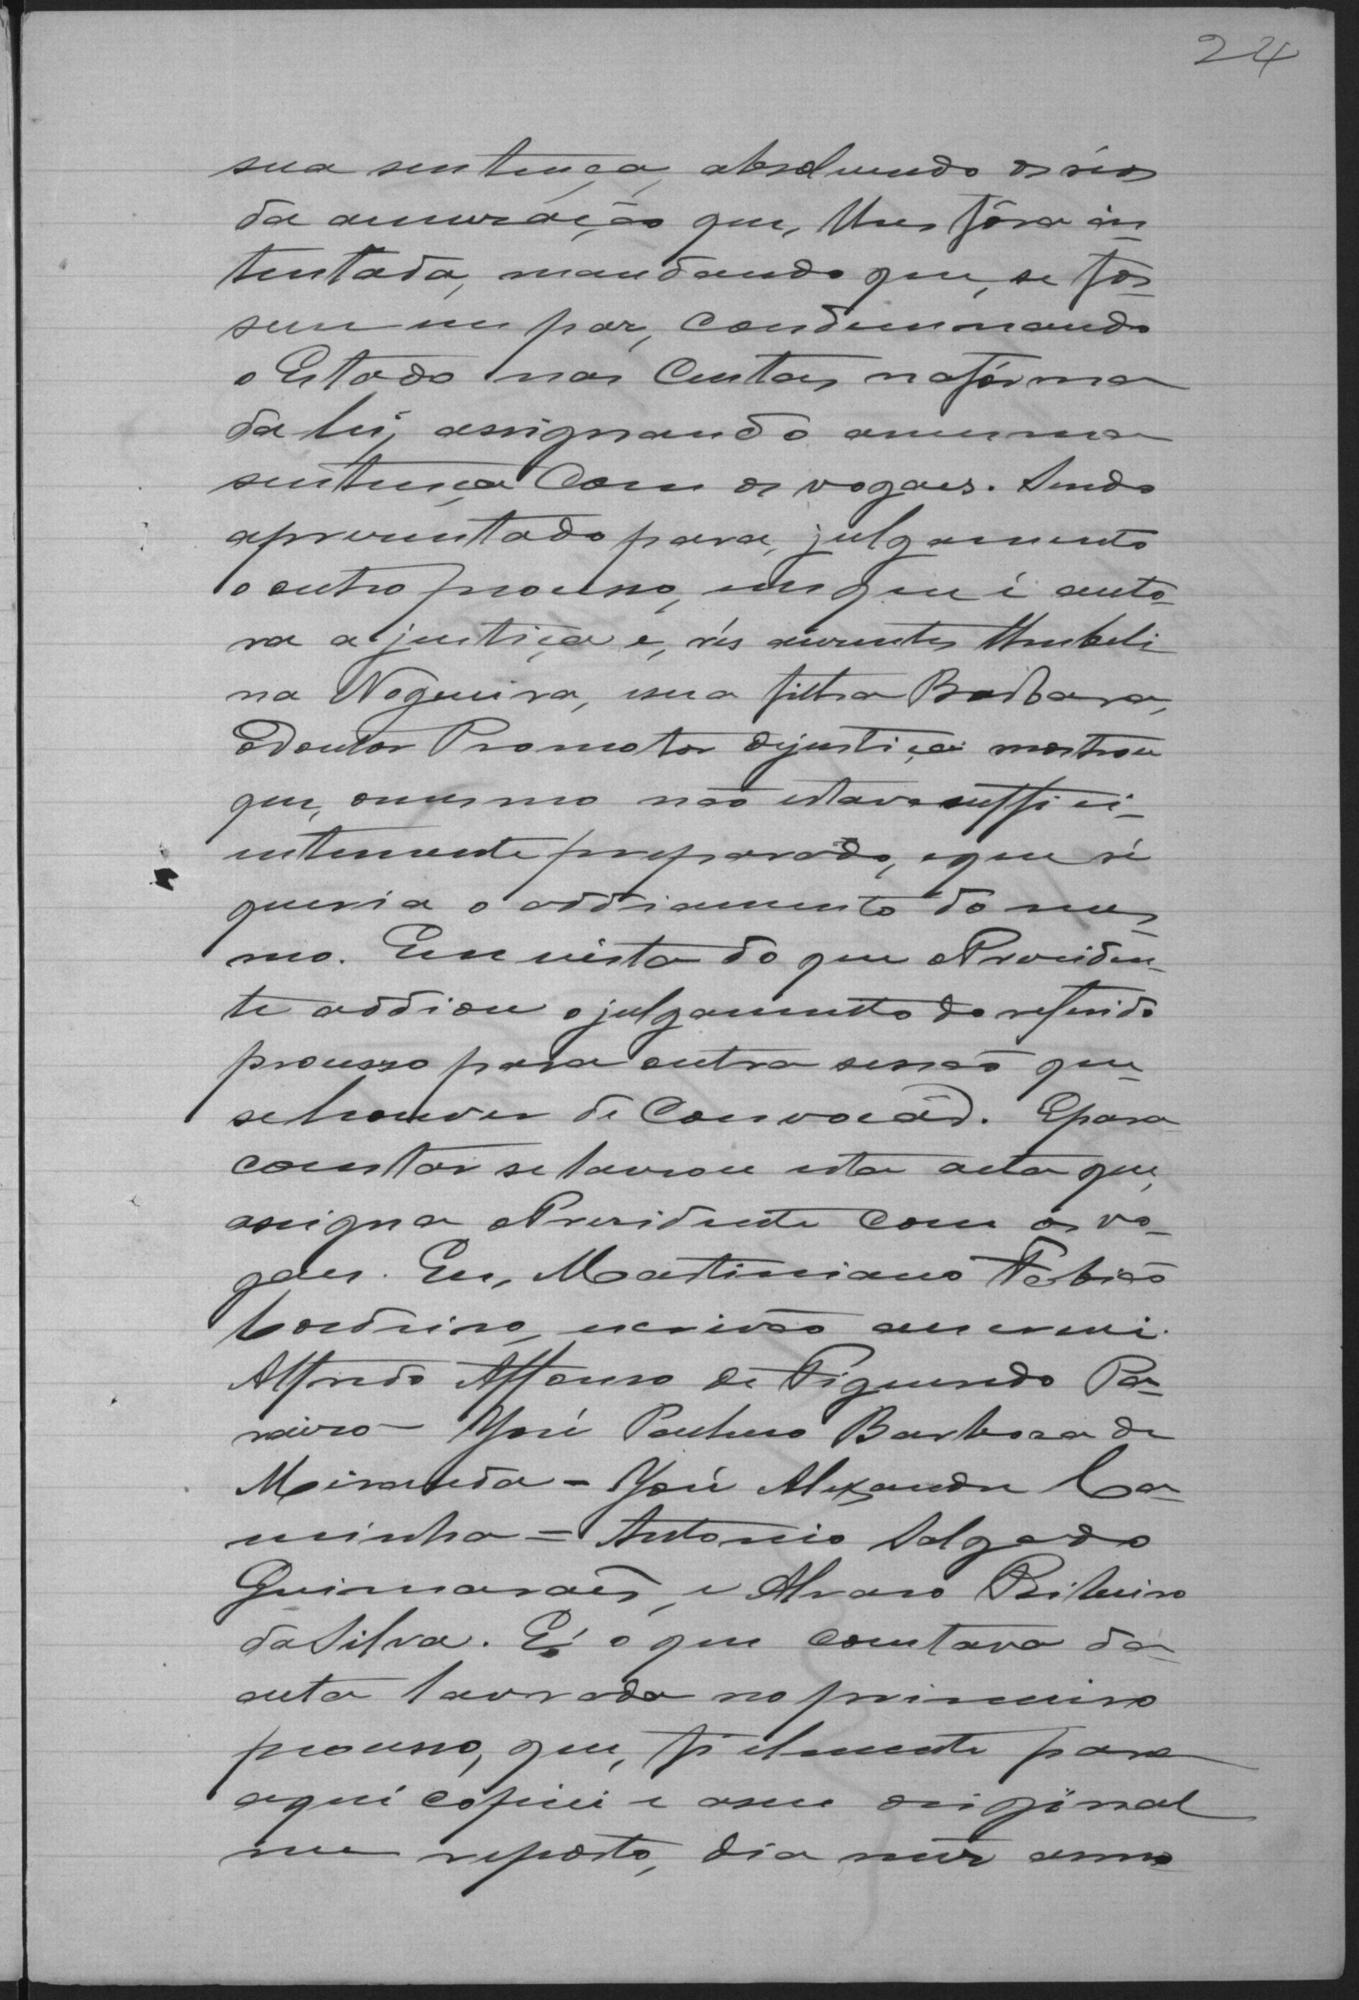 24
sua sentença, absolvendo os réos
da accusação que, lhes fôra in-
tentada, mandando que, se fos-
sem em paz, condemnando
o Estado nas custas na fórma
da lei, assignando a mesma
sentença com os vogaes. Sendo
apresentado para, julgamento
o outro processo, em que é auto-
ra a justiça e, rés ausentes Umbeli
na Nogueira, e sua filha Barbara,
o Doutor Promotor de justiça mostrou
que, o mesmo não estava suffici-
entemente preparado, e que re
queria o addiamento do mes-
mo. Em vista do que o Presiden-
te addiou o julgamento do referido
processo para outra sessão que
se houver de convocar. E para
constar se lavrou esta acta que,
assigna o Presidente com os vo-
gaes. Eu, Martiniano Fabião
Loureiro, escrivão a escrevi.
Alfredo Affonso de Figueredo Pa-
raiso - José Paulino Barbosa de
Miranda - José Alexandre Ca-
minha = Antonio Salgado
Guimarães, e Alvaro Ribeiro
da Silva. É o que constava da
acta lavrada no primeiro
processo, que, fielmente para
aqui copiei e a seu original
me reporto, dia mez anno